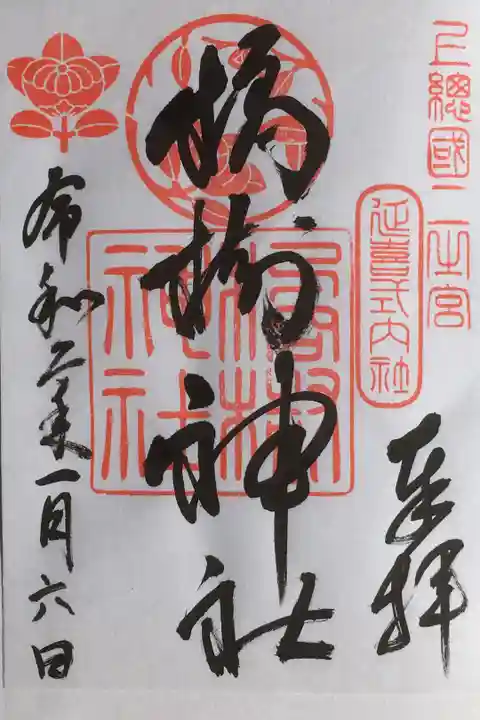 上總國二之宮
延喜式内社
奉拝
橘樹神社
橘樹神社
令和二年一月六日